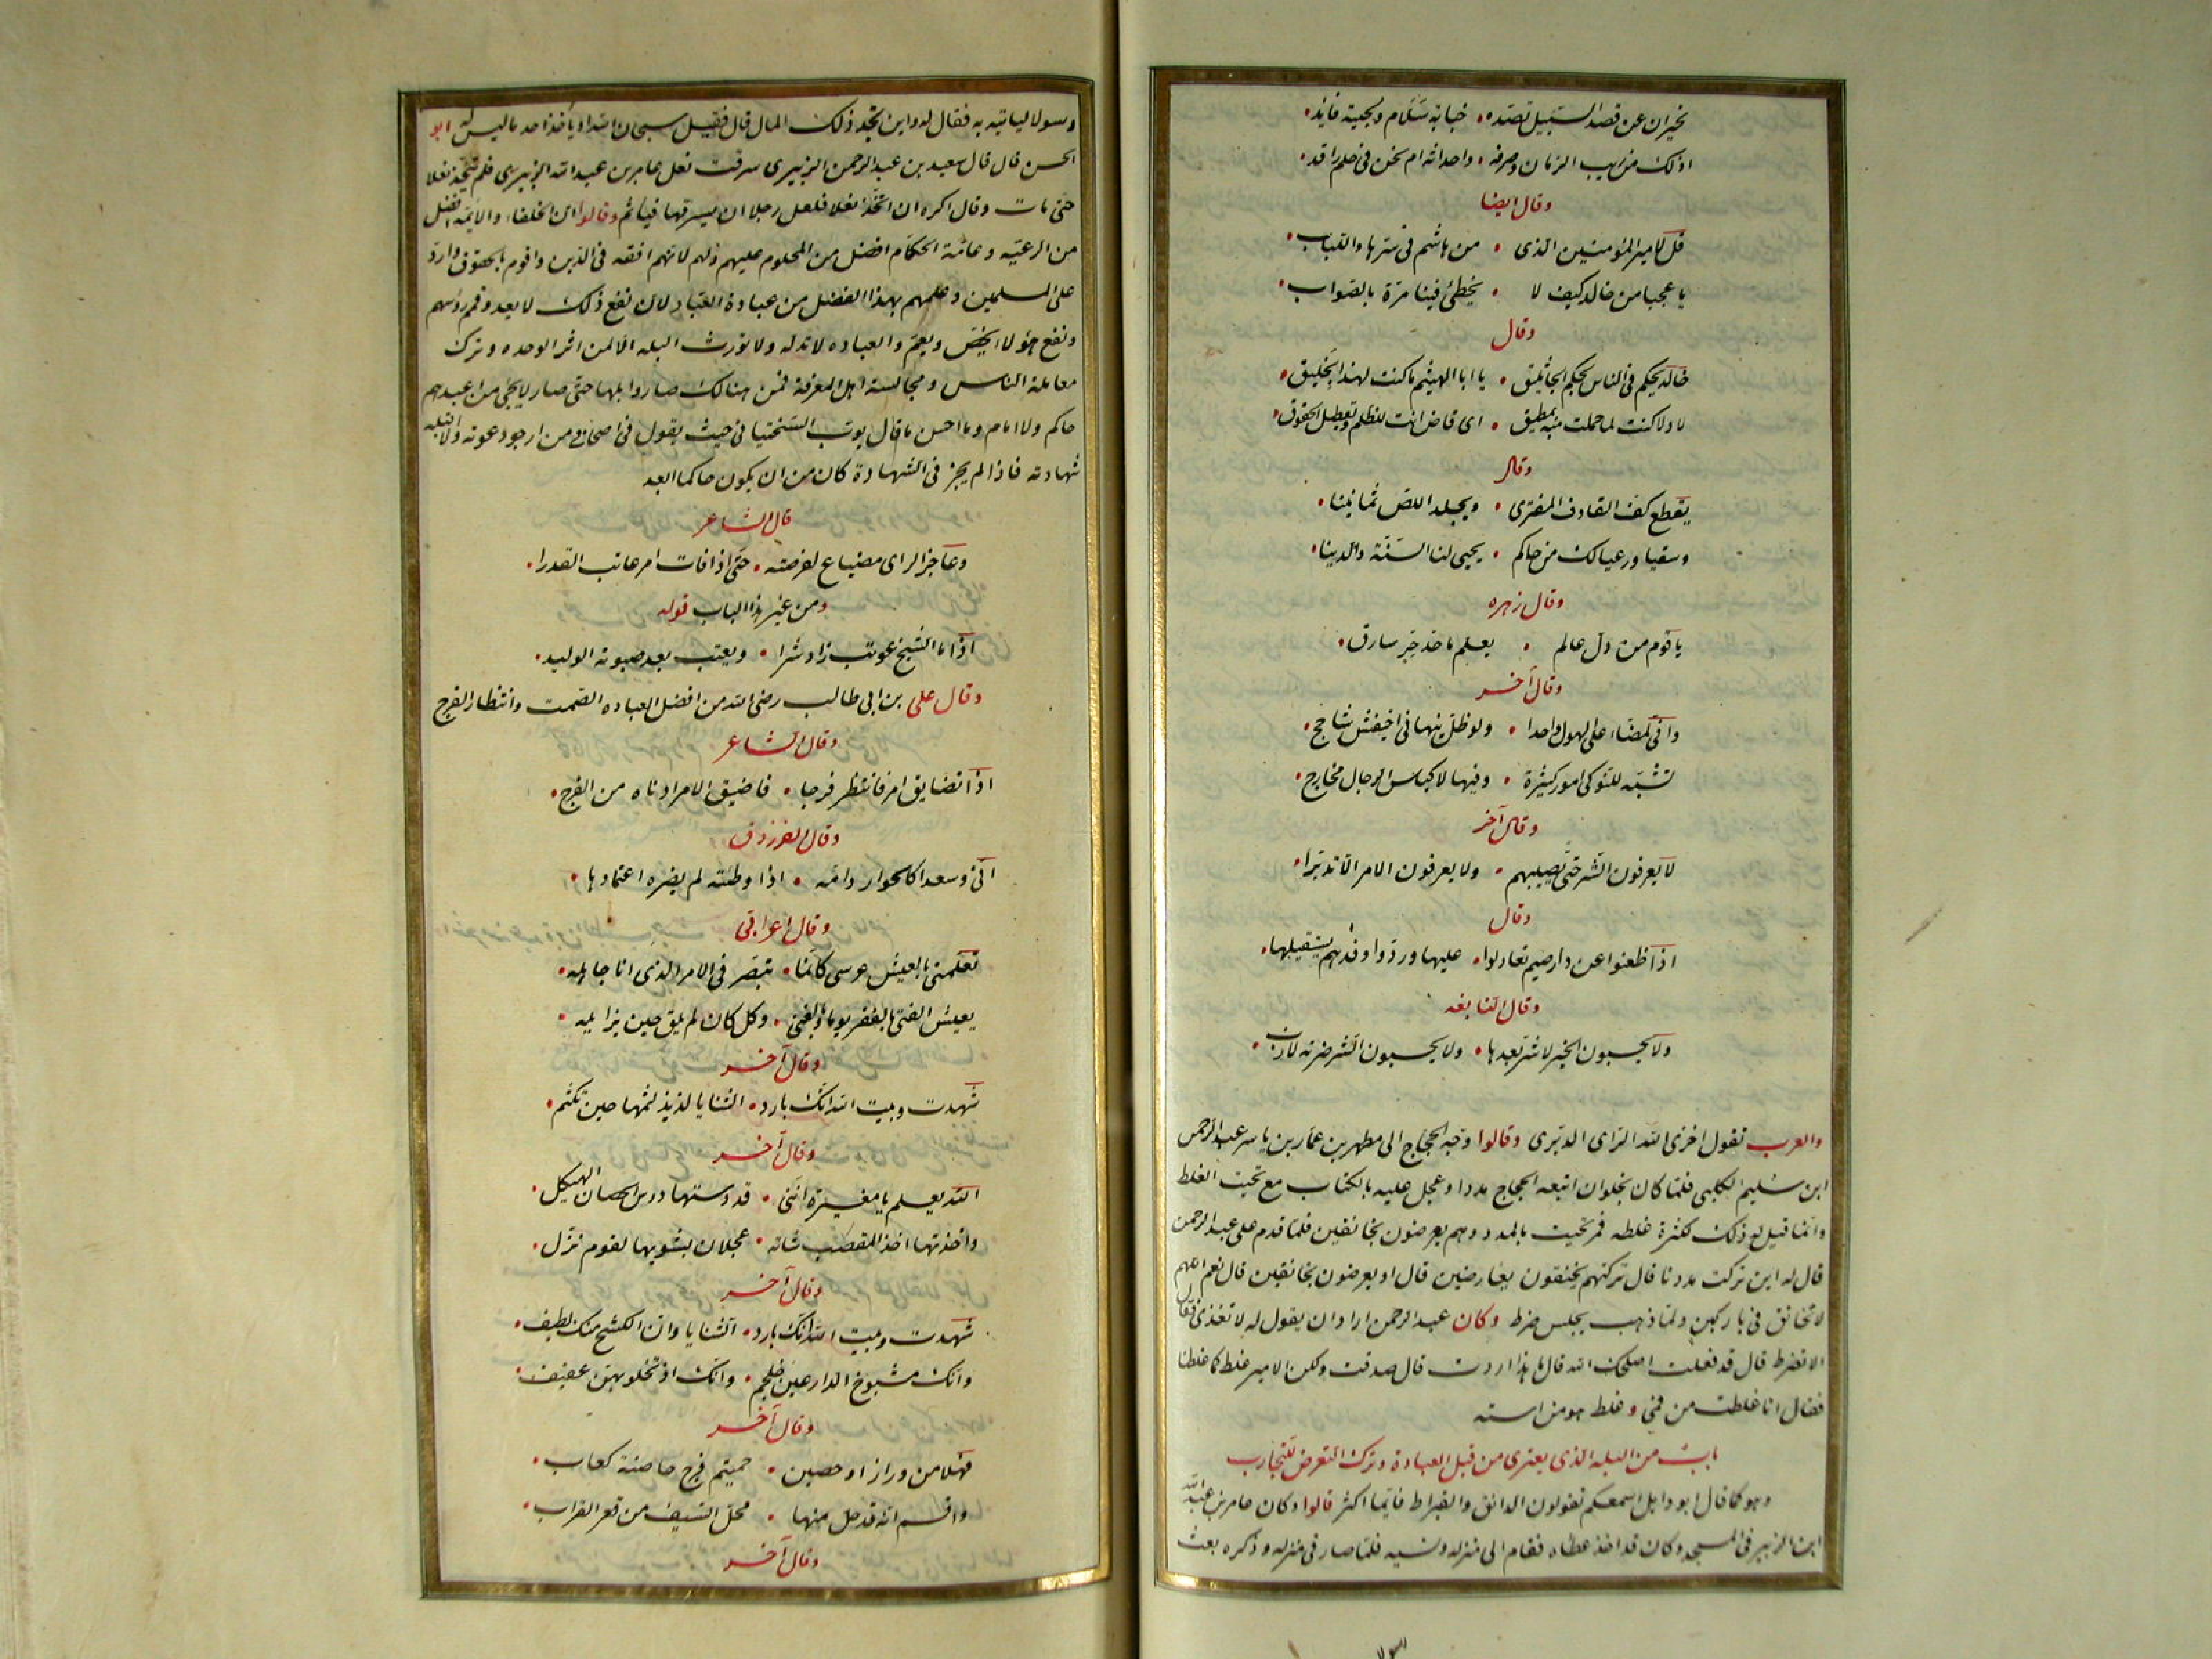 يخيران عن قصد السبيل تصده • خبابة سلام ولجية فايد •
اذلك من ريب الزمان وصرفه • واحداثه ام نحن في حلم راقد •
وقال ايضا
قل لامير المؤمنين الذي • من هاشم في سرها واللباب •
يا عجبا من خالد كيف لا • يخطئ فينا مرة بالصواب •
وقال
خالد يحكم في الناس بحكم الجاثليق • يا ابا الهيثم ما كنت لهذا بخليق •
لا ولا كنت لما حملت منه بمطيق • اي قاض انت للظلم وتعطيل الحقوق •
وقال
يقطع كف القاذف المفتري • ويجلد اللص ثمانينا •
وسقيا ورعيا لك من حاكم • يحيي لنا السنة والدينا •
وقال زهره
يا قوم من دل عالم • يعلم ما حد حر سارق •
وقال آخر
واني لمضاء على الهول واحدا • ولو ظل ينهاني اخيفش شاحج •
تشبه للنوكى امور كثيرة • وفيها لاكياس الرجال مخارج •
وقال آخر
لا يعرفون الشر حتى يصيبهم • ولا يعرفون الامر الا تدبرا •
وقال
اذا ظعنوا عن دار ضيم تعاذلوا • عليها وردوا وفدهم يستقيلها •
وقال النابغه
ولا يحسبون الخير لا شر بعدها • ولا يحسبون الشر ضربة لازب •
والعرب تقول اخزى الله الراى الدبرى وقالوا وجه الحجاج الى مطهر بن عمار بن ياسر عبد الرحمن
ابن سليم الكلبي فلما كان بحلوان اتبعه الحجاج مددا وعجل عليه بالكتاب مع تخيت الغلط
وانما قيل له ذلك لكثرة غلطه فمر تخيت بالمدد وهم يعرضون بخانقين فلما قدم على عبد الرحمن
قال له اين تركت مددنا قال تركتهم يخنقون بعارضين قال او يعرضون بخانقين قال نعم اللهم
لا تخانق في باركين ولما ذهب يجلس ضرط وكان عبد الرحمن اراد ان يقول له لا تغذى فقال
الا تضرط قال قد فعلت اصلحك الله قال ما هذا اردت قال صدقت ولكن الامير غلط كما غلطنا
فقال انا غلطت من فمي وغلط هو من استه
باب من البله الذي يعتري من قبل العبادة وترك التعرض للتجارب
وهو كما قال ابو وايل اسمعكم تقولون الدانق والقيراط فايما اكثر قالوا وكان عامر بن عبد الله
ابن الزبير في المسجد وكان قد اخذ عطاه فقام الى منزله ونسيه فلما صار في منزله وذكره بعث
رسولا
رسولا لياتيه به فقال له واين تجد ذلك المال قال فقيل سبحان الله او ياخذ احد ما ليس له ابو
الحسن قال قال سعيد بن عبد الرحمن الزبيري سرقت نعل عامر بن عبد الله الزبيري فلم يتخذ نعلا
حتى مات وقال اكره ان اتخذ نعلا فلعل رجلا ان يسرقها فياثم وقالوا ان الخلفاء والايمه افضل
من الرعيه وعامة الحكام افضل من المحكوم عليهم ولهم لانهم افقه في الدين واقوم بالحقوق وارد
على المسلمين وعلمهم بهذا افضل من عبادة العباد لان نفع ذلك لا يعدو قمم رؤسهم
ونفع هؤلاء يخص ويعم والعباده لا تدله ولا تورث البله الا لمن اثر الوحده وترك
معاملة الناس ومجالسة اهل المعرفة فمن هنالك صاروا بلها حتى صار لا يجئ من اعبدهم
حاكم ولا امام وما احسن ما قال يوب السختياني حيث يقول في اصحابي من ارجو دعوته ولا اقبل
شهادته فاذا لم يجز في الشهادة كان من ان يكون حاكما ابعد
قال الشاعر
وعاجز الراى مضياع لفرصته • حتى اذا فات امر عاتب القدرا •
ومن غير هذا الباب قوله
اذا ما الشيخ عوتب زاد شرا • ويعتب بعد صبوته الوليد •
وقال علي بن ابي طالب رضي الله من افضل العباده الصمت وانتظار الفرج
وقال الشاعر
اذا تضايق امر فانتظر فرجا • فاضيق الامر ادناه من الفرج •
وقال الفرزدق
اني وسعدا كالحوار وامه • اذا وطئته لم يضره اعتمادها •
وقال اعرابي
تعلمني بالعيش عرسي كانما • تبصر في الامر الذي انا جاهله •
يعيش الفتى بالفقر يوما وبالغنى • وكل كان لم يلق حين يزايله •
وقال آخر
شهدت وبيت الله انك بارد • الثنايا لذيذ لثمها حين تلثم •
وقال آخر
الله يعلم يا مغيرة انني • قد دستها دوس الحصان الهيكل •
واخذتها اخذ المقصب شاته • عجلان يشويها لقوم نزل •
وقال آخر
شهدت وبيت الله انك بارد • الثنايا وان الكشح منك لطيف •
وانك مشبوح الذراعين خلجم • وانك اذ تخلو بهن عفيف •
وقال آخر
فهلا من وزاز او حصين • حميتم فرج حاصنة كعاب •
واقسم انه قد حل منها • محل السيف من قعر القراب •
وقال آخر